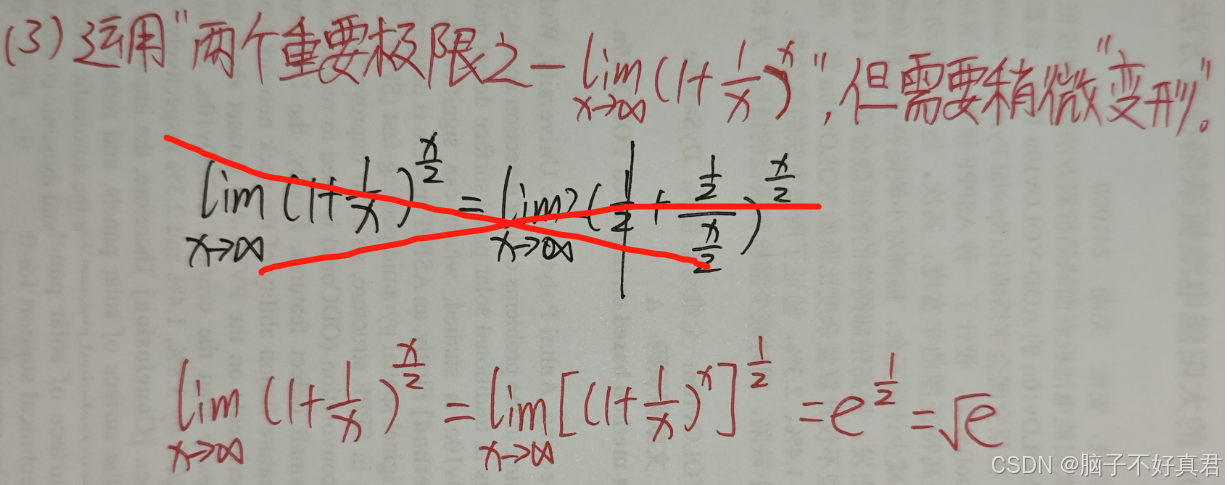 (3)运用"两个重要极限之一 lim x→∞ (1+1/x)^x",但需要稍微"变形"。
lim x→∞ (1+1/x)^(x/2) = lim x→∞ (
lim x→∞ (1+1/x)^(x/2) = lim x→∞ [(1+1/x)^x]^(1/2) = e^(1/2) = √e
CSDN @脑子不好真君